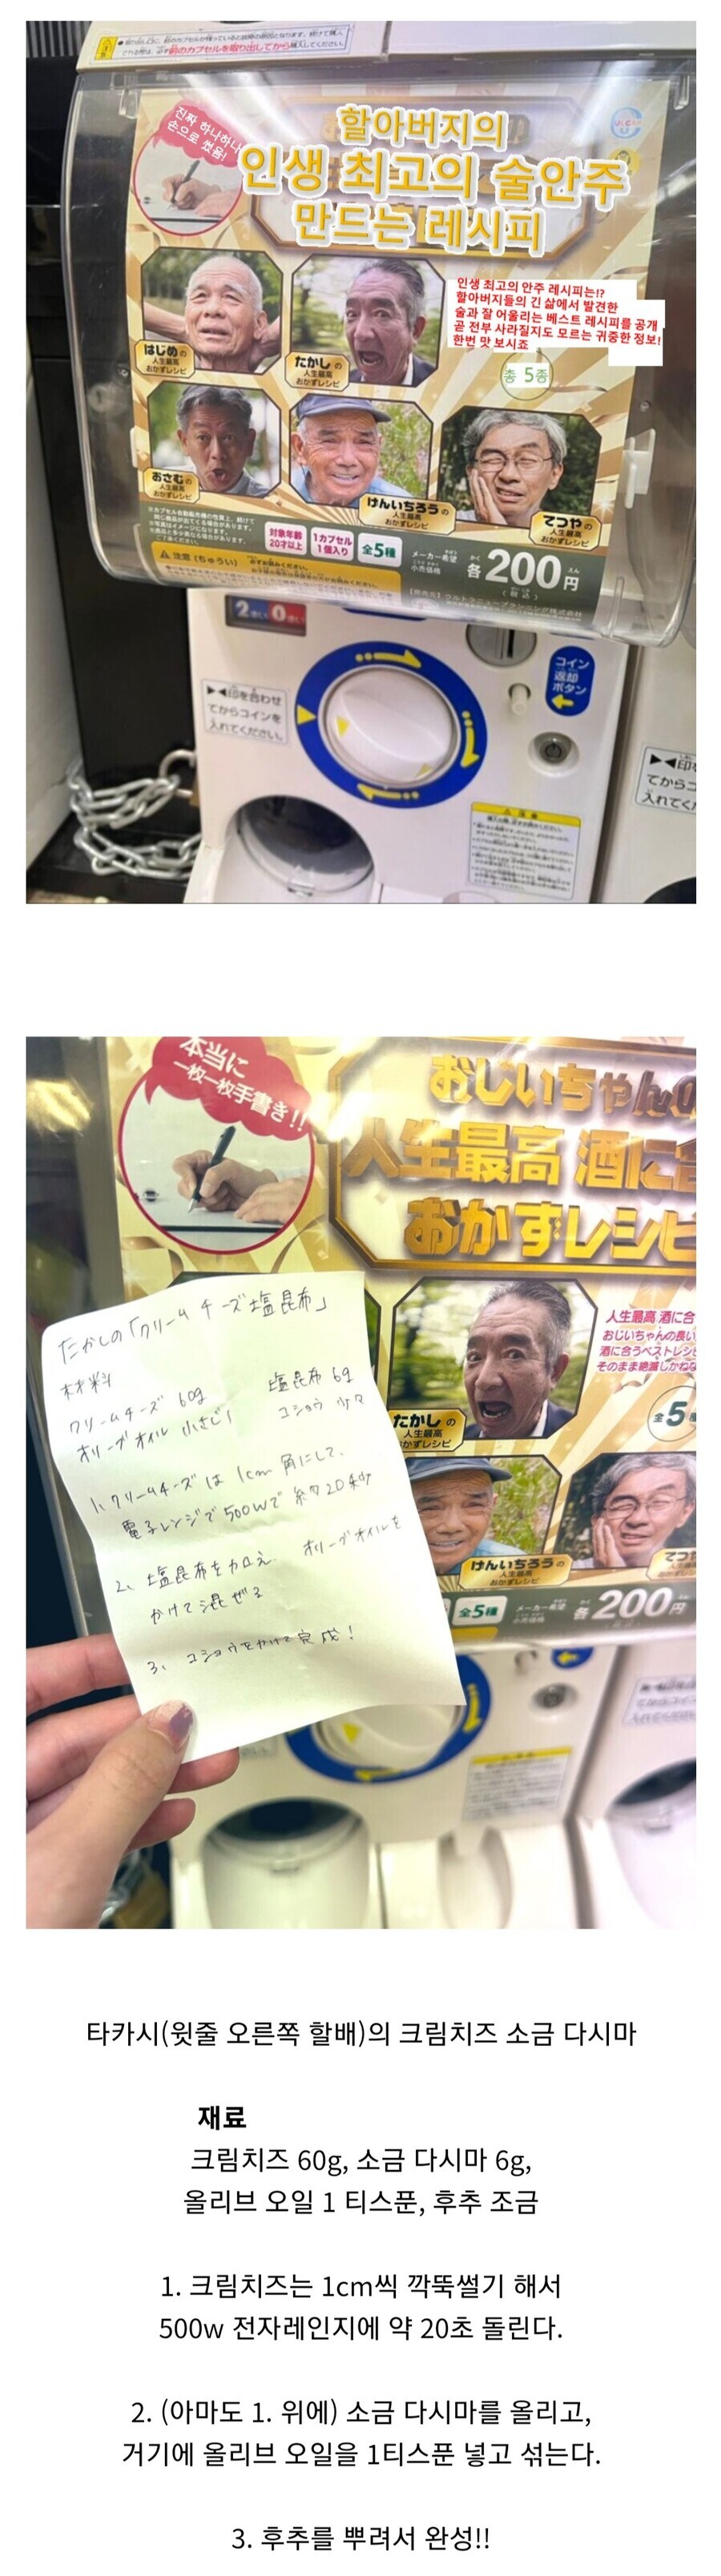 前のカプセルを取り出してから
진짜 하나하나
손으로 썼음!
할아버지의
인생 최고의 술안주
만드는 레시피
인생 최고의 안주 레시피는!?
할아버지들의 긴 삶에서 발견한
술과 잘 어울리는 베스트 레시피를 공개
곧 전부 사라질지도 모르는 귀중한 정보!
한번 맛 보시죠
총 5종
はじめの
人生最高
おかずレシピ
たかしの
人生最高
おかずレシピ
おさむの
人生最高
おかずレシピ
けんいちろうの
人生最高
おかずレシピ
てつやの
人生最高
おかずレシピ
対象年齢
20才以上
1カプセル
1個入り
全5種
メーカー希望
小売価格
各200円
(税込)
注意(ちゅうい)
コイン
返却
ボタン
▶◀印を合わせ
てからコインを
入れてください。
▶◀印を
てからコ
入れてく
本当に
一枚一枚手書き!!
おじいちゃんの
人生最高 酒に合
おかずレシピ
人生最高 酒に合
おじいちゃんの長い
酒に合うベストレシ
そのまま絶滅しかねな
全5種
たかしの
人生最高
おかずレシピ
けんいちろうの
人生最高
おかずレシピ
てつ
全5種
メーカー希望
小売価格
各200円
たかしの「クリームチーズ塩昆布」
材料
クリームチーズ 60g 塩昆布 6g
オリーブオイル 小さじ1 コショウ 少々
1、クリームチーズは 1cm角にして、
電子レンジで500Wで 約20秒
2、塩昆布を加え オリーブオイルを
かけて混ぜる
3、コショウをかけて完成!
타카시(윗줄 오른쪽 할배)의 크림치즈 소금 다시마
재료
크림치즈 60g, 소금 다시마 6g,
올리브 오일 1 티스푼, 후추 조금
1. 크림치즈는 1cm씩 깍뚝썰기 해서
500w 전자레인지에 약 20초 돌린다.
2. (아마도 1. 위에) 소금 다시마를 올리고,
거기에 올리브 오일을 1티스푼 넣고 섞는다.
3. 후추를 뿌려서 완성!!